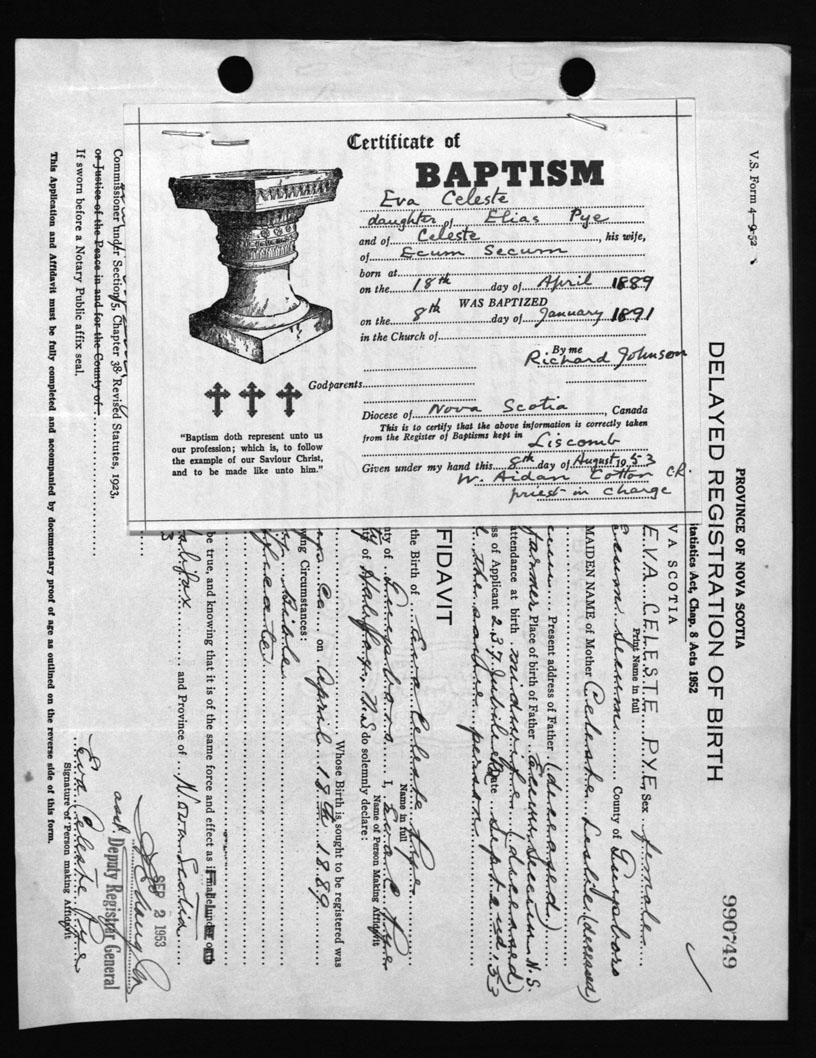 Certificate of
BAPTISM
Eva Celeste
daughter of Elias Pye
and of Celeste, his wife,
of Ecum Secum
born at
on the 18th day of April 1889
WAS BAPTIZED
on the 8th day of January 1891
in the Church of
By me
Richard Johnson
Godparents
Diocese of Nova Scotia, Canada
This is to certify that the above information is correctly taken
from the Register of Baptisms kept in Liscomb
Given under my hand this 8th day of August 1953
W. Aidan Cotton
priest-in charge
"Baptism doth represent unto us
our profession; which is, to follow
the example of our Saviour Christ,
and to be made like unto him."
V.S. Form 4—9-52
990749
PROVINCE OF NOVA SCOTIA
DELAYED REGISTRATION OF BIRTH
tatistics Act, Chap. 8 Acts 1952
VA SCOTIA
EVA CELESTE PYE, Sex female
Print Name in full
ecum Secum County of Guysboro
MAIDEN NAME of Mother Celeste Leslie (deceased)
Present address of Father (deceased)
farmer Place of birth of Father Ecum Secum N.S.
attendance at birth midwife (deceased)
ss of Applicant 237 Jubilee Date Sept 2nd, 53
the same person
FIDAVIT
the Birth of Eva Celeste Pye
Name in full
nty of Guysboro I, Eva C Pye
Name of Person Making Affidavit
ty of Halifax, N.S do solemnly declare:
Whose Birth is sought to be registered was
Co. on April 18th 1889
ing Circumstances:
Bible
be true, and knowing that it is of the same force and effect as if made under oath
alifax and Province of Nova Scotia
3
SEP 2 1953
asst. Deputy Registrar General
Commissioner under Section 5, Chapter 38 Revised Statutes, 1923.
or Justice of the Peace in and for the County of
If sworn before a Notary Public affix seal.
Eva Celeste Pye
Signature of Person making Affidavit
This Application and Affidavit must be fully completed and accompanied by documentary proof of age as outlined on the reverse side of this form.